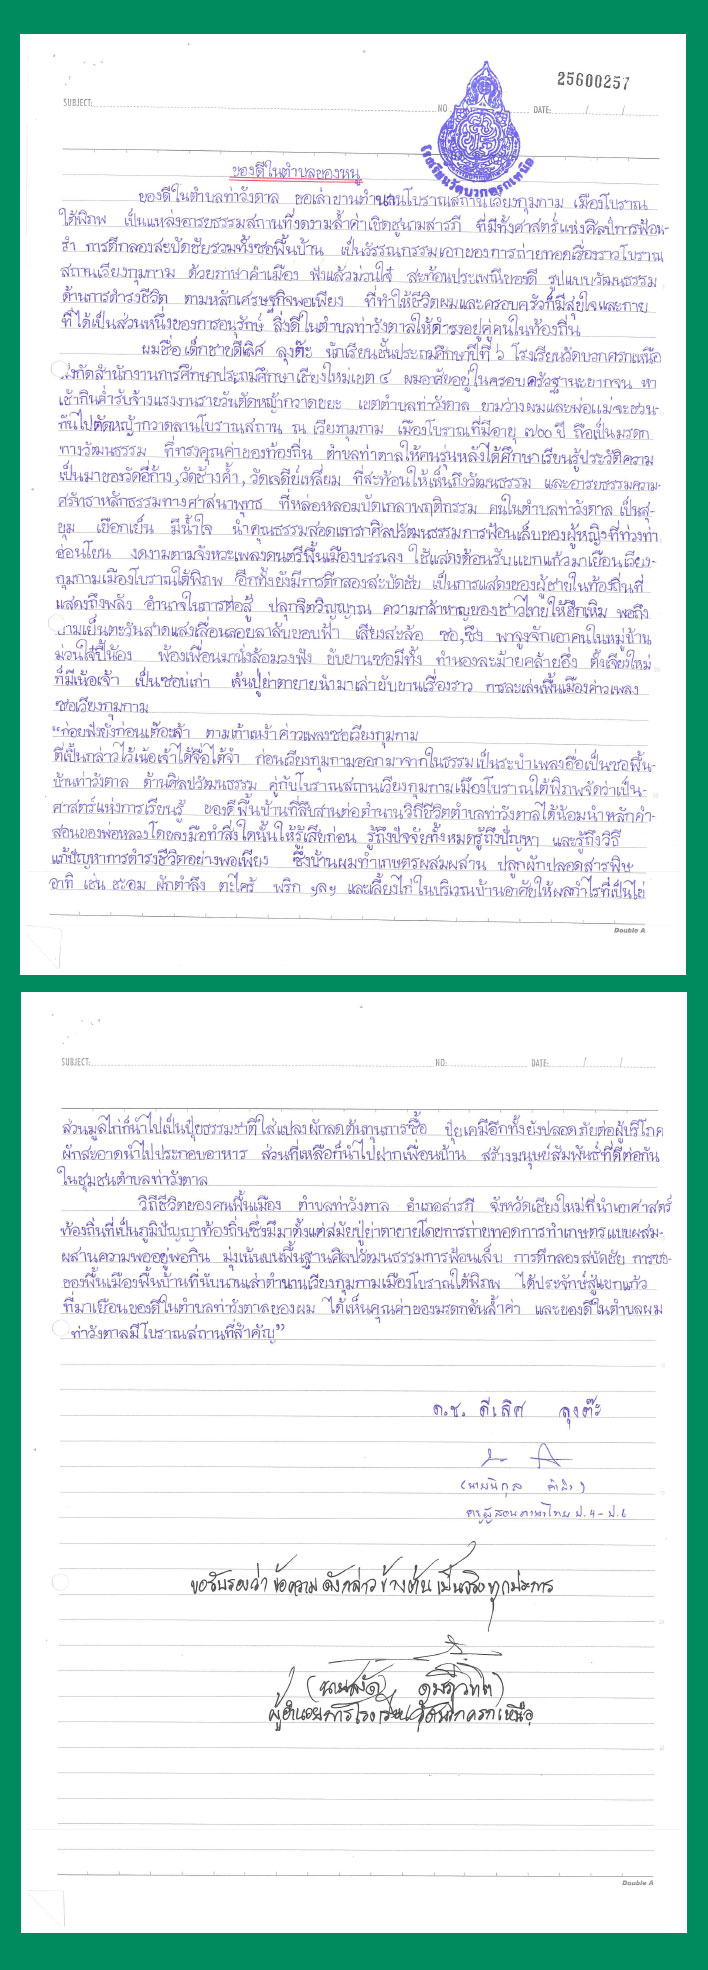 25600257
SUBJECT: NO. DATE: / /
โรงเรียนวัดบวกครกเหนือ
ของดีในตำบลของหนู
ของดีในตำบลท่าวังตาล ขอเล่าขานตำนานโบราณสถานเวียงกุมกาม เมืองโบราณ
ใต้พิภพ เป็นแหล่งอารยธรรมสถานที่งดงามล้ำค่าเชิดชูนามสารภี ที่มีทั้งศาสตร์แห่งศิลป์การฟ้อน-
รำ การตีกลองสะบัดชัยรวมทั้งซอพื้นบ้าน เป็นวรรณกรรมเอกของการถ่ายทอดเรื่องราวโบราณ
สถานเวียงกุมกาม ด้วยภาษาคำเมือง ฟังแล้วม่วนใจ๋ สะท้อนประเพณีของดี รูปแบบวัฒนธรรม
ด้านการดำรงชีวิต ตามหลักเศรษฐกิจพอเพียง ที่ทำให้ชีวิตผมและครอบครัวก็มีสุขใจและกาย
ที่ได้เป็นส่วนหนึ่งของการอนุรักษ์ สิ่งดีในตำบลท่าวังตาลให้ดำรงอยู่คู่คนในท้องถิ่น
ผมชื่อ เด็กชายดีเลิศ ลุงต๊ะ นักเรียนชั้นประถมศึกษาปีที่ ๖ โรงเรียนวัดบวกครกเหนือ
สังกัดสำนักงานการศึกษาประถมศึกษาเชียงใหม่เขต ๔ ผมอาศัยอยู่ในครอบครัวฐานะยากจน หา
เช้ากินค่ำรับจ้างแรงงานรายวันตัดหญ้ากวาดขยะ เขตตำบลท่าวังตาล ยามว่างผมและพ่อแม่จะชวน-
กันไปตัดหญ้ากวาดลานโบราณสถาน ณ เวียงกุมกาม เมืองโบราณที่มีอายุ ๗๐๐ ปี ถือเป็นมรดก
ทางวัฒนธรรม ที่ทรงคุณค่าของท้องถิ่น ตำบลท่าตาลให้คนรุ่นหลังได้ศึกษาเรียนรู้ประวัติความ
เป็นมาของวัดอีก้าง,วัดช้างค้ำ,วัดเจดีย์เหลี่ยม ที่สะท้อนให้เห็นถึงวัฒนธรรม และอารยธรรมความ-
ศรัทธาหลักธรรมทางศาสนาพุทธ ที่หล่อหลอมบัดเกลาพฤติกรรม คนในตำบลท่าวังตาล เป็นสุ-
ขุม เยือกเย็น มีน้ำใจ นำคุณธรรมสอดแทรกศิลปวัฒนธรรมการฟ้อนเล็บของผู้หญิงที่ท่วงท่า
อ่อนโยน งดงามตามจังหวะเพลงดนตรีพื้นเมืองบรรเลง ใช้แสดงต้อนรับแขกแก้วมาเยือนเวียง-
กุมกามเมืองโบราณใต้พิภพ อีกทั้งยังมีการตีกลองสะบัดชัย เป็นการแสดงของผู้ชายในท้องถิ่นที่
แสดงถึงพลัง อำนาจในการต่อสู้ ปลุกจิตวิญญาณ ความกล้าหาญของชาวไทยให้ฮึกเหิม พอถึง
ยามเย็นตะวันสาดแสงเลื่อนลอยลาลับขอบฟ้า เสียงสะล้อ ซอ,ซึง พาจูงจักเอาคนในหมู่บ้าน
ม่วนใจ๋ปี้น้อง พ้องเพื่อนมานั่งล้อมวงฟัง ขับขานซอมีทั้ง ทำนองละม้ายคล้ายอื่อ ตั้งเจียงใหม่
ก็มีเน้อเจ้า เป็นซอบ่เก่า เล่นปู่ย่าตายายนำมาเล่าขับขานเรื่องราว การละเล่นพื้นเมืองค่าวเพลง
ซอเวียงกุมกาม
“ก่อยฟังยั้งก่อนเต๊อะเจ้า ตามเก๊าเหง้าค่าวเพลงซอเวียงกุมกาม
ตี้เปิ้นกล่าวไว้เน้อเจ้าได้จื่อได้จำ ก่อนเวียงกุมกามออกมาจากในธรรมเป็นระบำเพลงอื่อเป็นซอพื้น-
บ้านท่าวังตาล ด้านศิลปวัฒนธรรม คู่กับโบราณสถานเวียงกุมกามเมืองโบราณใต้พิภพจัดว่าเป็น-
ศาสตร์แห่งการเรียนรู้ ของดีพื้นบ้านที่สืบสานต่อตำนานวิถีชีวิตตำบลท่าวังตาลได้น้อมนำหลักคำ-
สอนของพ่อหลวงโดยลงมือทำสิ่งใดนั้นให้รู้เสียก่อน รู้ถึงปัจจัยทั้งหมดรู้ถึงปัญหา และรู้ถึงวิธี
แก้ปัญหาการดำรงชีวิตอย่างพอเพียง ซึ่งบ้านผมทำเกษตรผสมผสาน ปลูกผักปลอดสารพิษ
อาทิ เช่น ชะอม ผักตำลึง ตะไคร้ พริก ฯลฯ และเลี้ยงไก่ในบริเวณบ้านอาศัยให้ผลกำไรที่เป็นไข่
Double A
SUBJECT: NO: DATE: / /
ส่วนมูลไก่ก็นำไปเป็นปุ๋ยธรรมชาติใส่แปลงผักลดต้นทุนการซื้อ ปุ๋ยเคมีอีกทั้งยังปลอดภัยต่อผู้บริโภค
ผักสะอาดนำไปประกอบอาหาร ส่วนที่เหลือก็นำไปฝากเพื่อนบ้าน สร้างมนุษย์สัมพันธ์ที่ดีต่อกัน
ในชุมชนตำบลท่าวังตาล
วิถีชีวิตของคนพื้นเมือง ตำบลท่าวังตาล อำเภอสารภี จังหวัดเชียงใหม่ที่นำเอาศาสตร์
ท้องถิ่นที่เป็นภูมิปัญญาท้องถิ่นซึ่งมีมาตั้งแต่สมัยปู่ย่าตายายโดยการถ่ายทอดการทำเกษตรแบบผสม-
ผสานความพออยู่พอกิน มุ่งเน้นบนพื้นฐานศิลปวัฒนธรรมการฟ้อนเล็บ การตีกลองสบัดชัย การซอ-
ของพื้นเมืองพื้นบ้านที่นับนานเล่าตำนานเวียงกุมกามเมืองโบราณใต้พิภพ ได้ประจักษ์สู่แขกแก้ว
ที่มาเยือนของดีในตำบลท่าวังตาลของผม ได้เห็นคุณค่าของมรดกอันล้ำค่า และของดีในตำบลผม
ท่าวังตาลมีโบราณสถานที่สำคัญ”
ด.ช. ดีเลิศ ลุงต๊ะ
(นายนิกุล
ครูผู้สอนภาษาไทย ป.4 - ป.6
ขอรับรองว่า ข้อความดังกล่าวข้างต้น เป็นจริงทุกประการ
ผู้อำนวยการโรงเรียนวัดบวกครกเหนือ
Double A